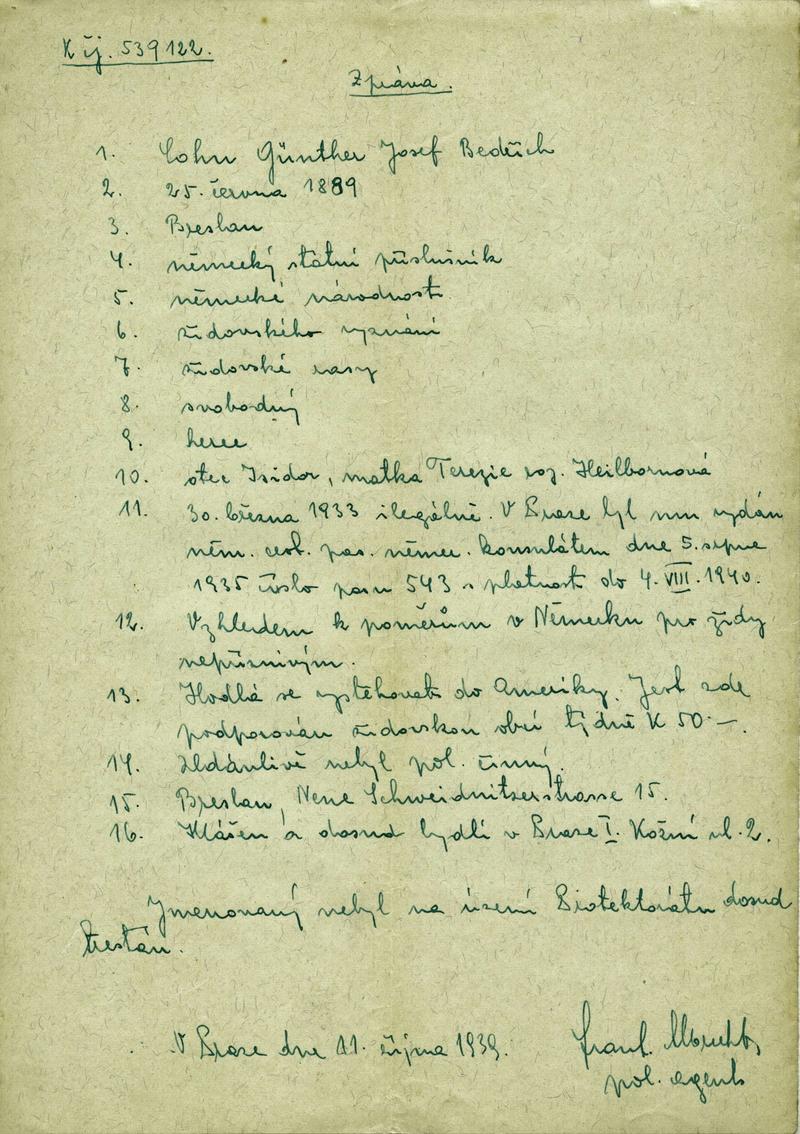 K čj. 539122.
Zpráva.
1. Cohn Günther Josef Bedřich
2. 25. června 1889
3. Breslau
4. německý státní příslušník
5. německé národnosti
6. židovského vyznání
7. židovské rasy
8. svobodný
9. herec
10. otec Isidor, matka Terezie roz. Heilbornová
11. 30. března 1933 ilegálně. V Praze byl mu vydán
něm. cest. pas. němec. konsulátem dne 5. srpna
1935 číslo pasu 543 s platností do 4. VIII. 1940.
12. Vzhledem k poměrům v Německu pro židy
nepříznivým.
13. Hodlá se vystěhovati do Ameriky. Jest zde
podporován židovskou obcí týdně K 50.—.
14. Zdánlivě nebyl pol. činný.
15. Breslau, Neue Schweidnitzerstrasse 15.
16. Hlášen a dosud bydlí v Praze I. Kožní ul. 2.
Jmenovaný nebyl na území Protektorátu dosud
trestán.
V Praze dne 11. října 1939.
Frant. Albrecht,
pol. agent